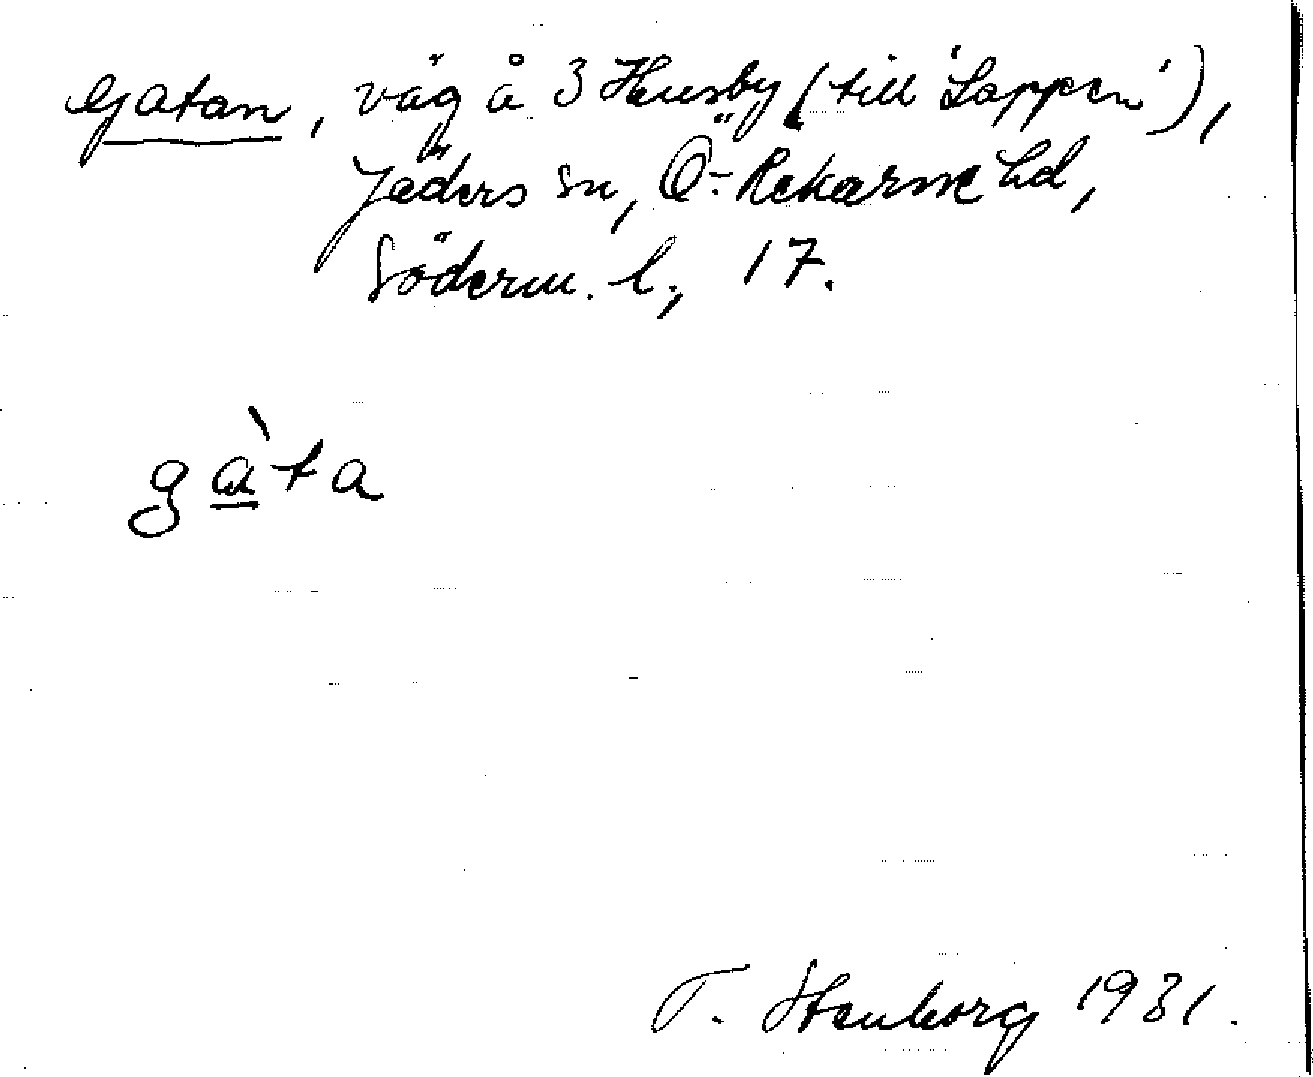 Gatan, väg å 3 Husby (till 'Lappen'),
Jäders sn, Ö. Rekarne hd,
Söderm. l., 17.
gàta
T. Stenborg 1931.